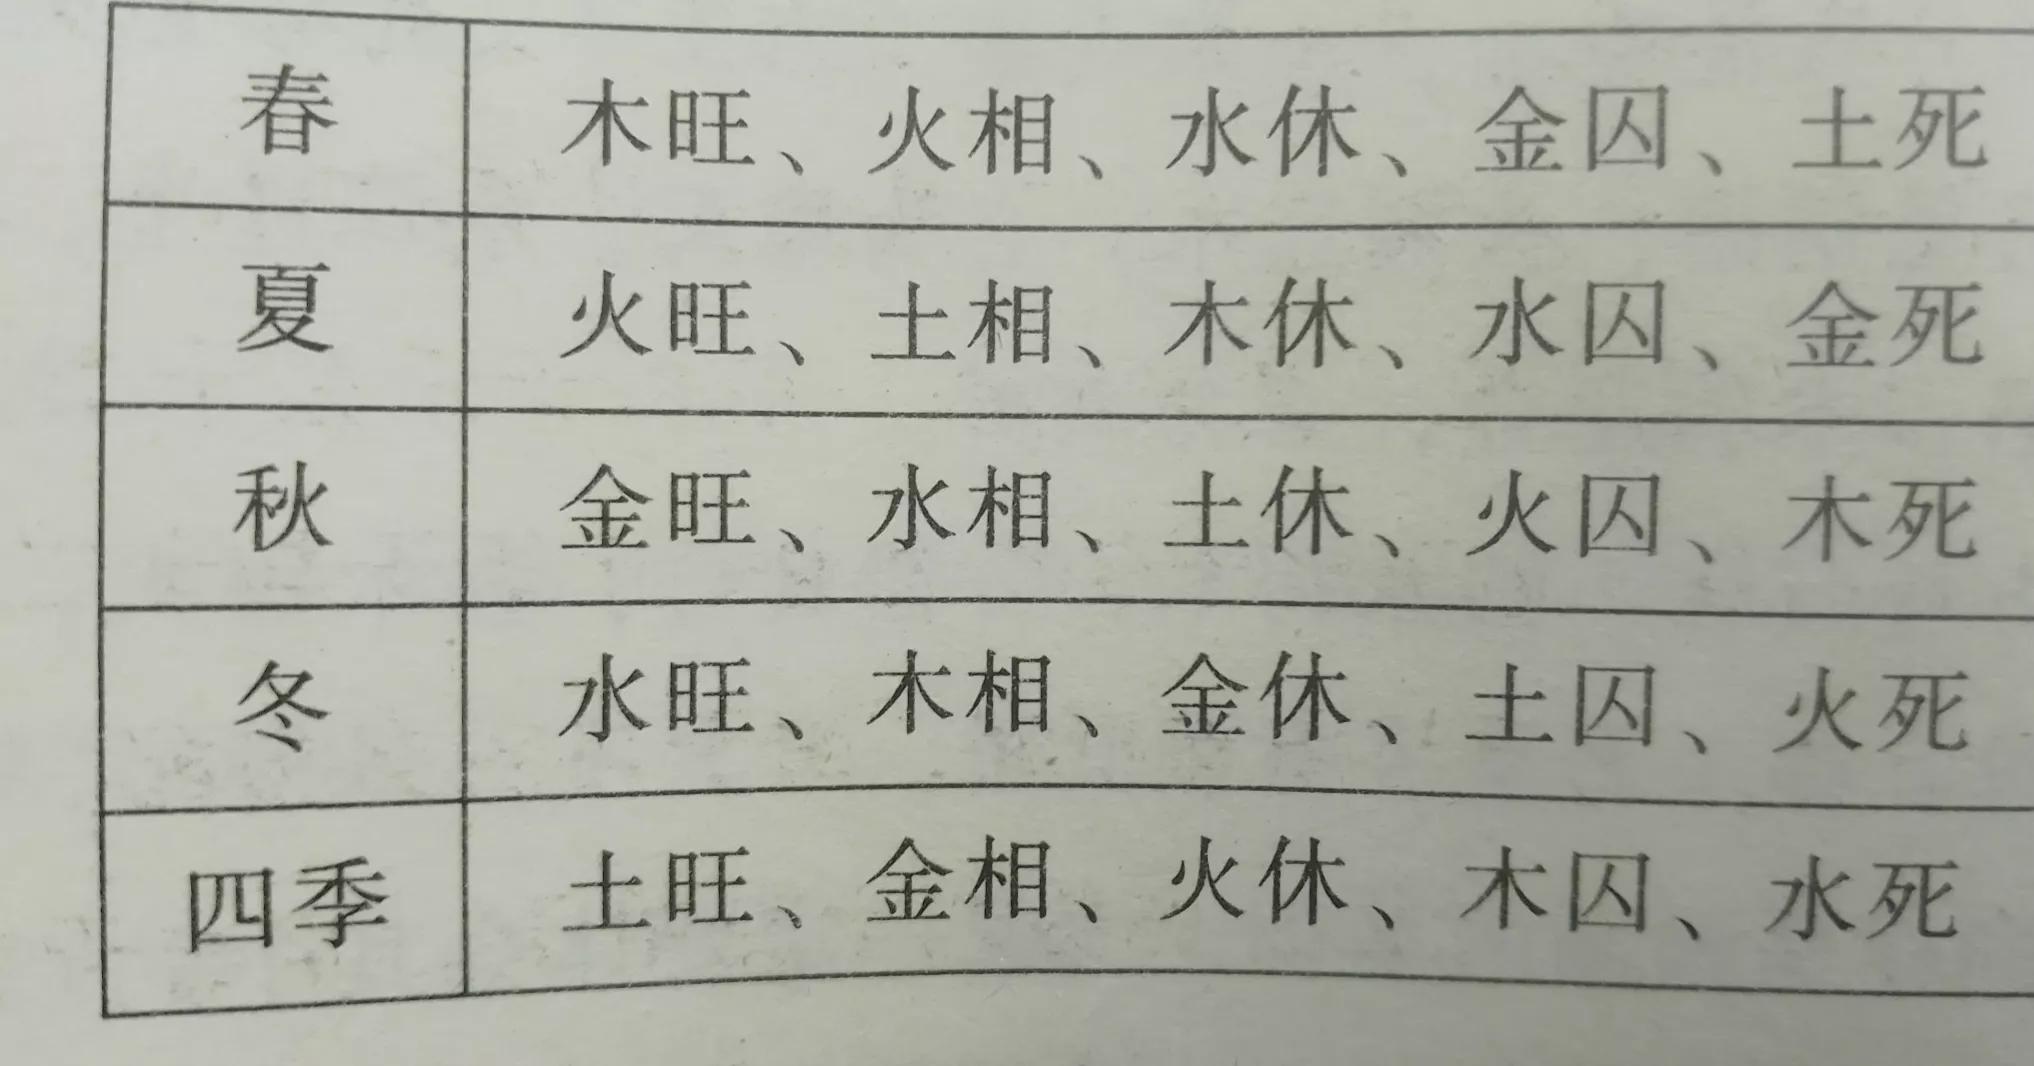 春 木旺、火相、水休、金囚、土死
夏 火旺、土相、木休、水囚、金死
秋 金旺、水相、土休、火囚、木死
冬 水旺、木相、金休、土囚、火死
四季 土旺、金相、火休、木囚、水死